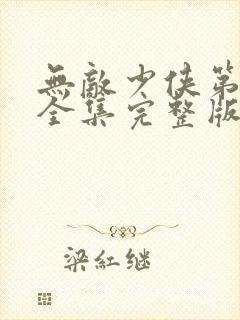 無敵少俠第
全集完整版
梁紅继